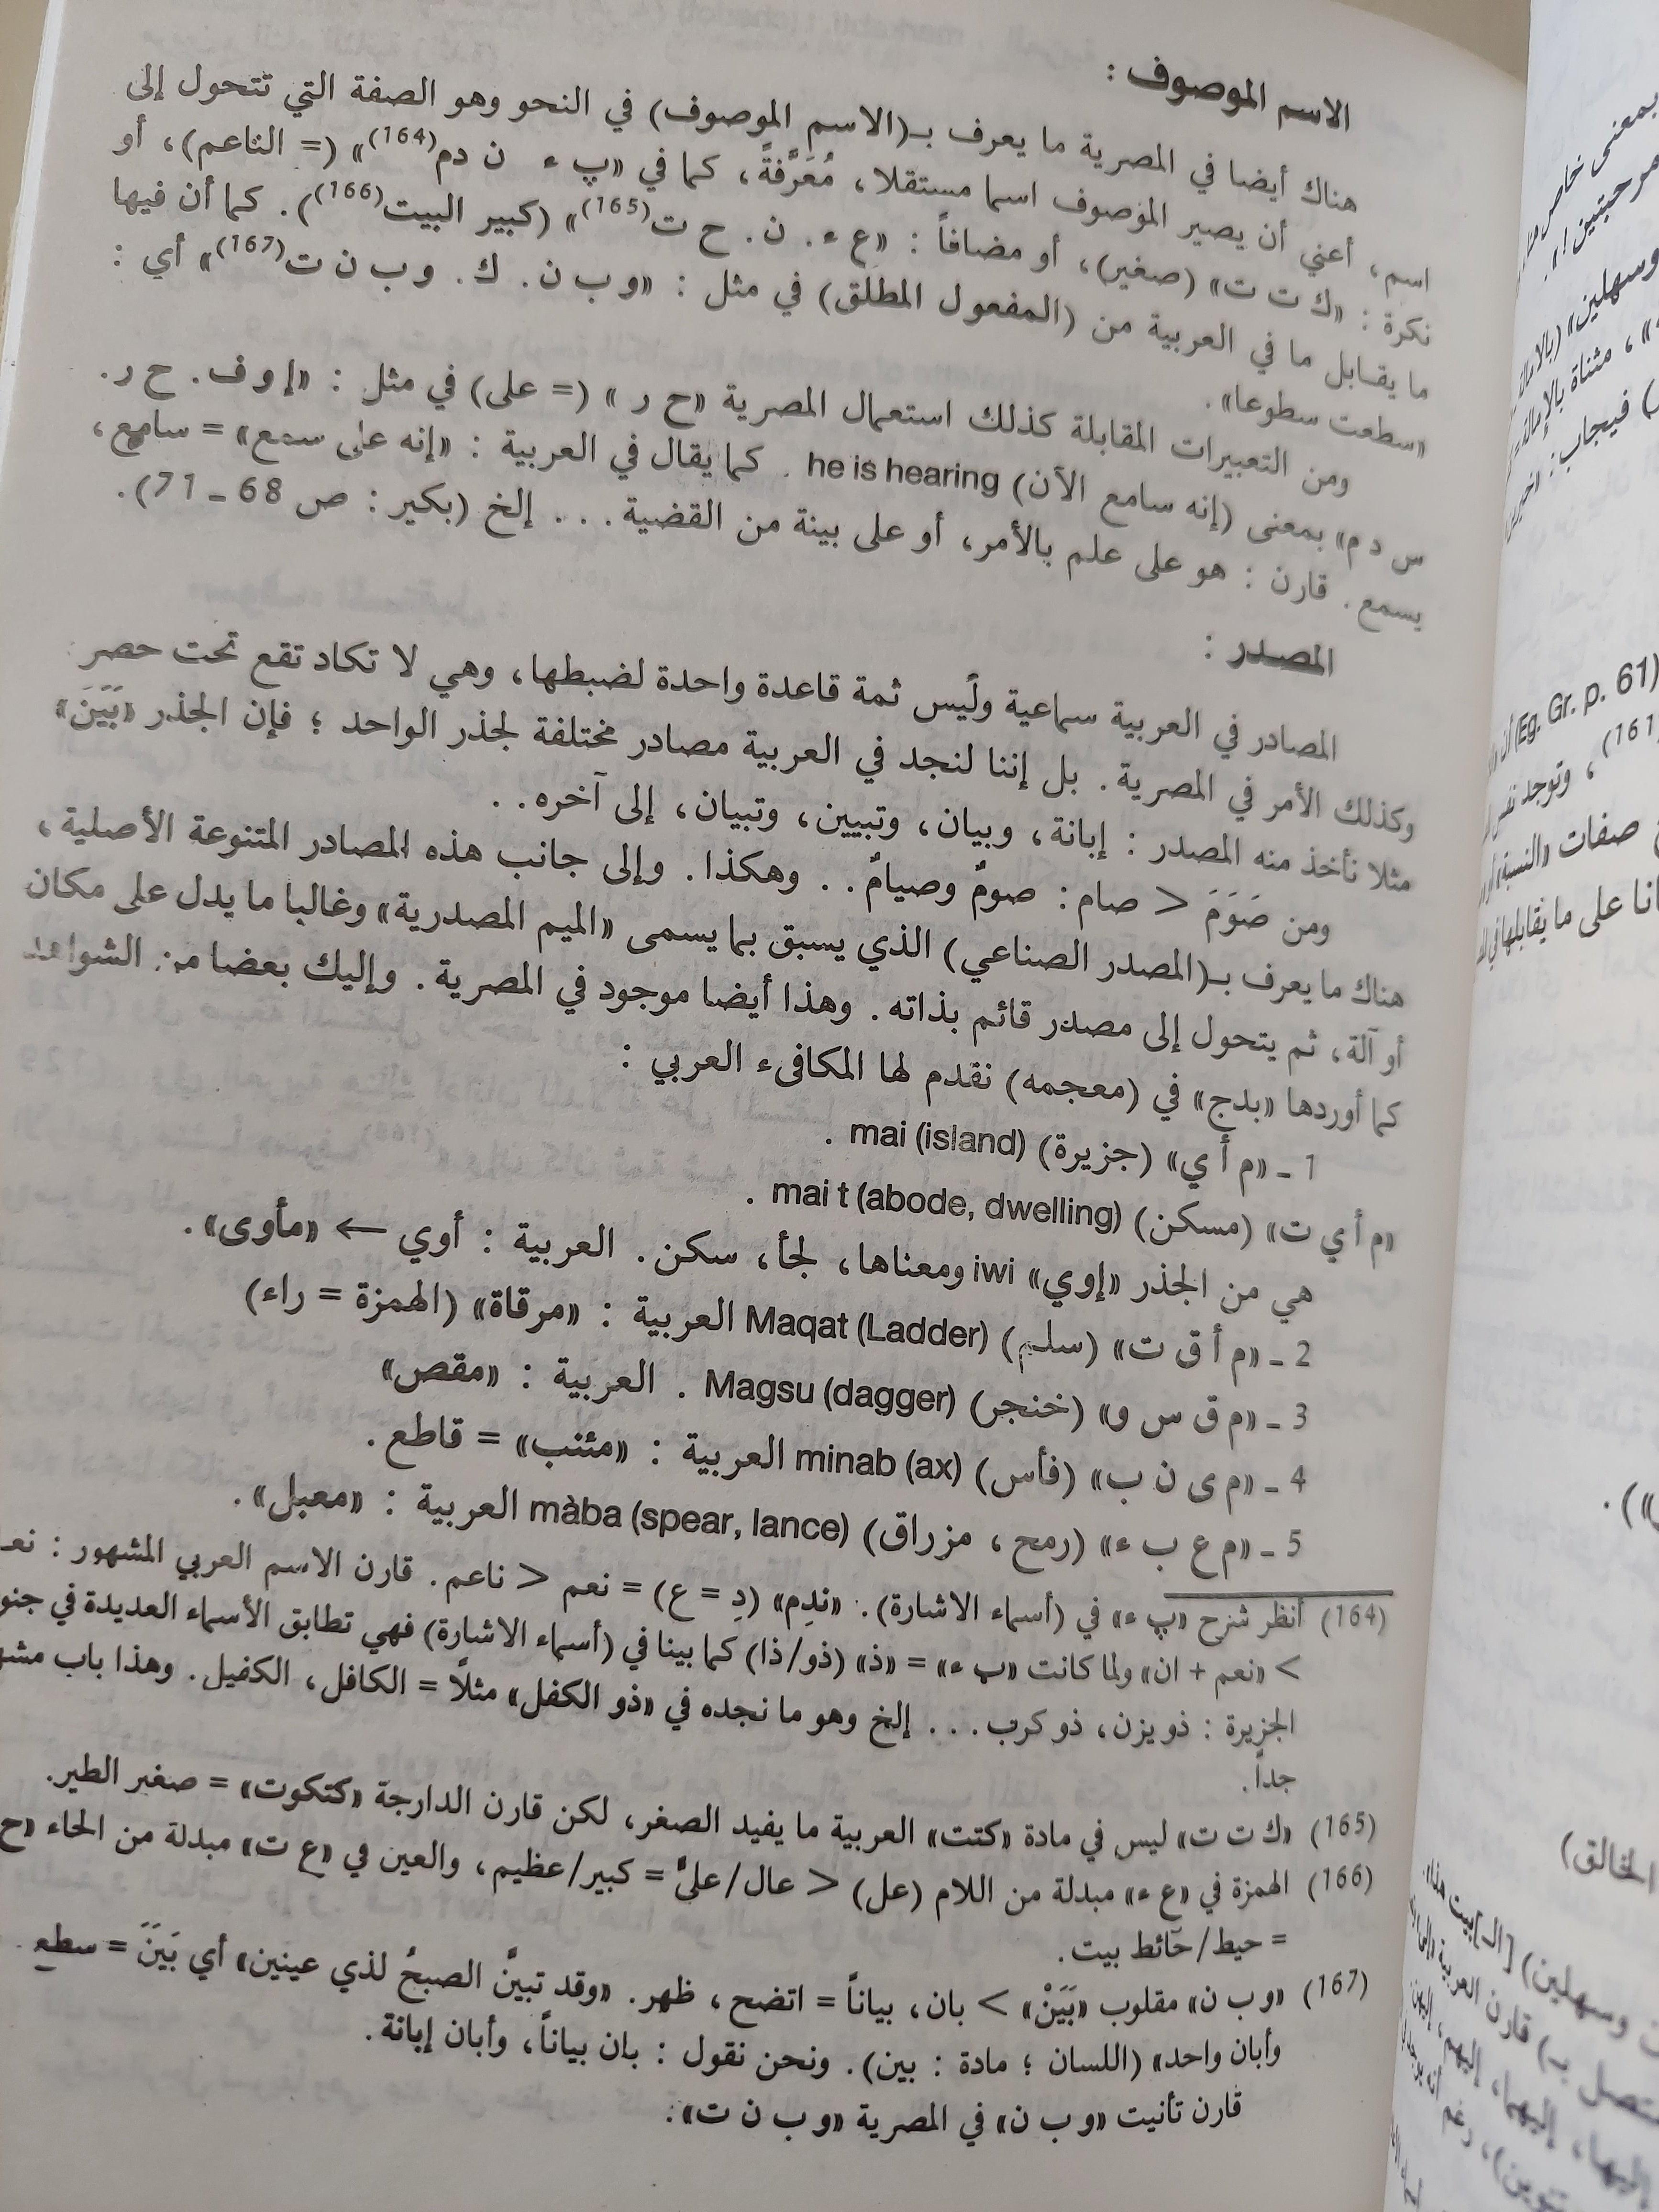 الاسم الموصوف :
هناك أيضا في المصرية ما يعرف بـ(الاسم الموصوف) في النحو وهو الصفة التي تتحول إلى
اسم، أعني أن يصير الموصوف اسما مستقلا، مُعَرَّفةً، كما في «پ ء ن دم(164)» (= الناعم)، أو
نكرة : «ك ت ت» (صغير)، أو مضافاً : «ع ء . ن . ح ت(165)» (كبير البيت(166)). كما أن فيها
ما يقابل ما في العربية من (المفعول المطلق) في مثل : «و ب ن . ك . و ب ن ت(167)» أي :
«سطعت سطوعا».
ومن التعبيرات المقابلة كذلك استعمال المصرية «ح ر» (= على) في مثل : «إ و ف . ح ر .
س د م» بمعنى (إنه سامع الآن) he is hearing . كما يقال في العربية : «إنه على سمع» = سامع،
يسمع. قارن : هو على علم بالأمر، أو على بينة من القضية . . . إلخ (بكير : ص 68 ـ 71).
المصدر :
المصادر في العربية سماعية وليس ثمة قاعدة واحدة لضبطها، وهي لا تكاد تقع تحت حصر
وكذلك الأمر في المصرية. بل إننا لنجد في العربية مصادر مختلفة لجذر الواحد ؛ فإن الجذر «بَيَنَ»
مثلا نأخذ منه المصدر : إبانة، وبيان، وتبيين، وتبيان، إلى آخره . .
ومن صَوَمَ < صام : صومٌ وصيامٌ . . وهكذا. وإلى جانب هذه المصادر المتنوعة الأصلية،
هناك ما يعرف بـ(المصدر الصناعي) الذي يسبق بما يسمى «الميم المصدرية» وغالبا ما يدل على مكان
أو آلة، ثم يتحول إلى مصدر قائم بذاته. وهذا أيضا موجود في المصرية. وإليك بعضا من الشواهد
كما أوردها «بدج» في (معجمه) نقدم لها المكافىء العربي :
1 ـ «م أ ي» (جزيرة) mai (island) .
«م أ ي ت» (مسكن) mai t (abode, dwelling) .
هي من الجذر «إوي» iwi ومعناها، لجأ، سكن. العربية : أوي ← «مأوى».
2 ـ «م أ ق ت» (سلم) Maqat (Ladder) العربية : «مرقاة» (الهمزة = راء)
3 ـ «م ق س و» (خنجر) Magsu (dagger) . العربية : «مقص»
4 ـ «م ى ن ب» (فأس) minab (ax) العربية : «مئنب» = قاطع.
5 ـ «م ع ب ء» (رمح ، مزراق) màba (spear, lance) العربية : «معبل».
(164) أنظر شرح «پ ء» في (أسماء الاشارة). «ندِم» (دِ = ع) = نعم < ناعم. قارن الاسم العربي المشهور :
> «نعم + ان» ولما كانت «پ ء» = «ذ» (ذو/ذا) كما بينا في (أسماء الاشارة) فهي تطابق الأسماء العديدة في
الجزيرة : ذو يزن، ذو كرب . . . إلخ وهو ما نجده في «ذو الكفل» مثلاً = الكافل، الكفيل. وهذا باب
جداً.
(165) «ك ت ت» ليس في مادة «كتت» العربية ما يفيد الصغر، لكن قارن الدارجة «كتكوت» = صغير الطير.
(166) الهمزة في «ع ء» مبدلة من اللام (عل) < عال/عليٌّ = كبير/عظيم، والعين في «ع ت» مبدلة من الحاء «ح
= حيط/حائط بيت.
(167) «و ب ن» مقلوب «بَيَنْ» > بان، بياناً = اتضح، ظهر. «وقد تبينَّ الصبحُ لذي عينين» أي بَيَنَ = سطع.
وأبان واحد» (اللسان ؛ مادة : بين). ونحن نقول : بان بياناً، وأبان إبانة.
قارن تأنيت «و ب ن» في المصرية «و ب ن ت» :
بمعنى خاص
مرحبتين!
وسهلين»
، مثناة بالإمالة
فيجاب :
(Eg. Gr. p. 61)
(161) ، وتوجد نفس
صفات «النسبة»
على ما يقابلها في
الخالق)
وسهلين) [الـ]بيت هذا.
قارن العربية